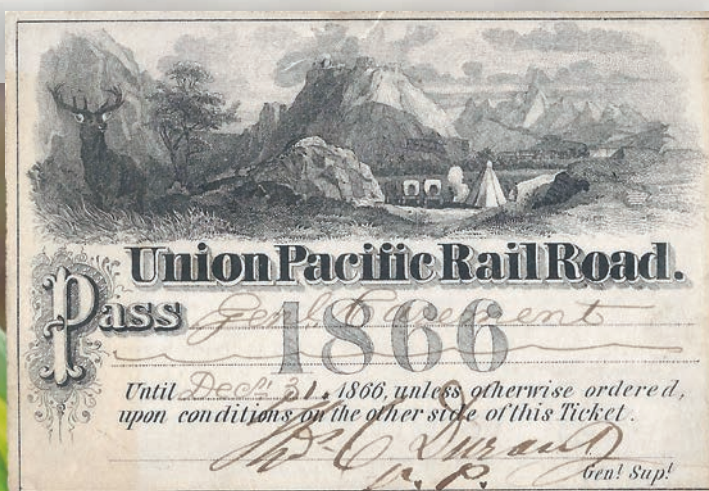 Union Pacific Rail Road.
Pass Genl. Casement
1866
Until Decr. 31. 1866, unless otherwise ordered,
upon conditions on the other side of this Ticket.
Thos C Durant
V. P.
Genl Supt